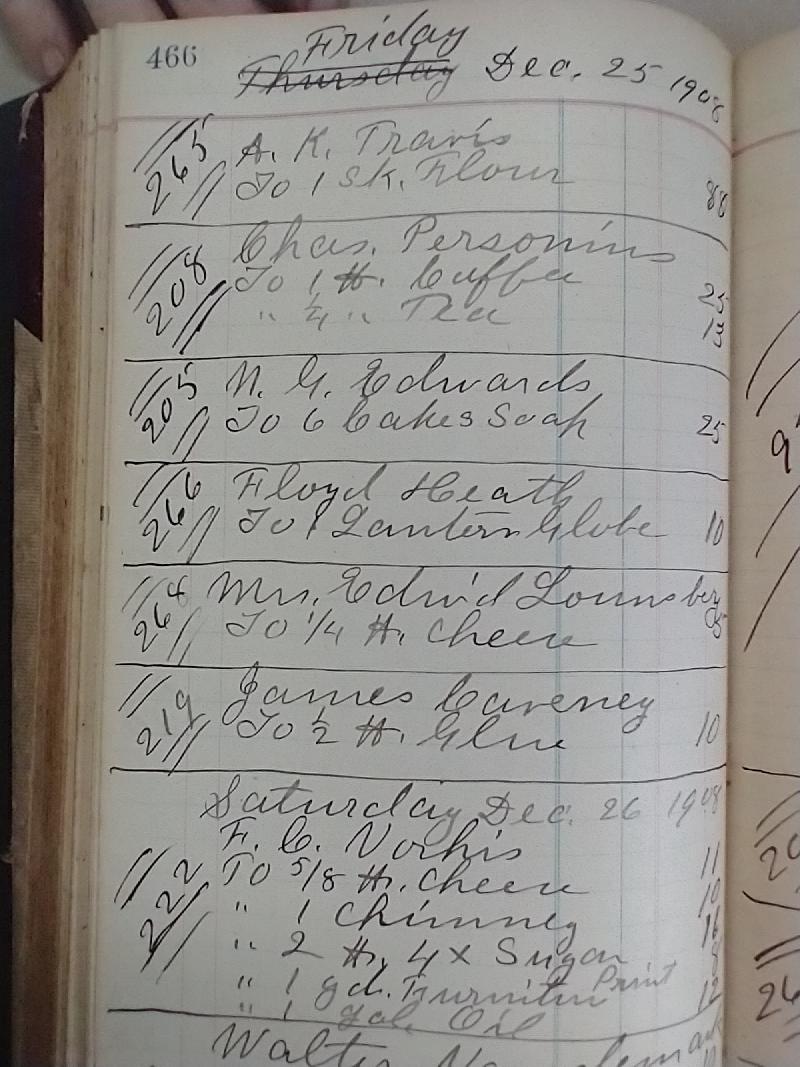 466
Friday
Thursday Dec. 25 1908
265 A. K. Travis
To 1 sk. Flour 88
208 Chas. Personius
To 1 #. Coffee 25
" 1/4 " Tea 13
205 N. G. Edwards
To 6 Cakes Soap 25
266 Floyd Heath
To 1 Lantern Globe 10
268 Mrs. Edwd Lounsbery
To 1/4 #. Cheese 5
219 James Caveney
To 1/2 #. Glue 10
Saturday Dec. 26 1908
222 F. C. Vorhis
To 5/8 #. Cheese 11
" 1 Chimney 10
" 2 #. 4x Sugar 16
" 1 yd. Furniture Print 8
" 1 gal. Oil 12
Walter